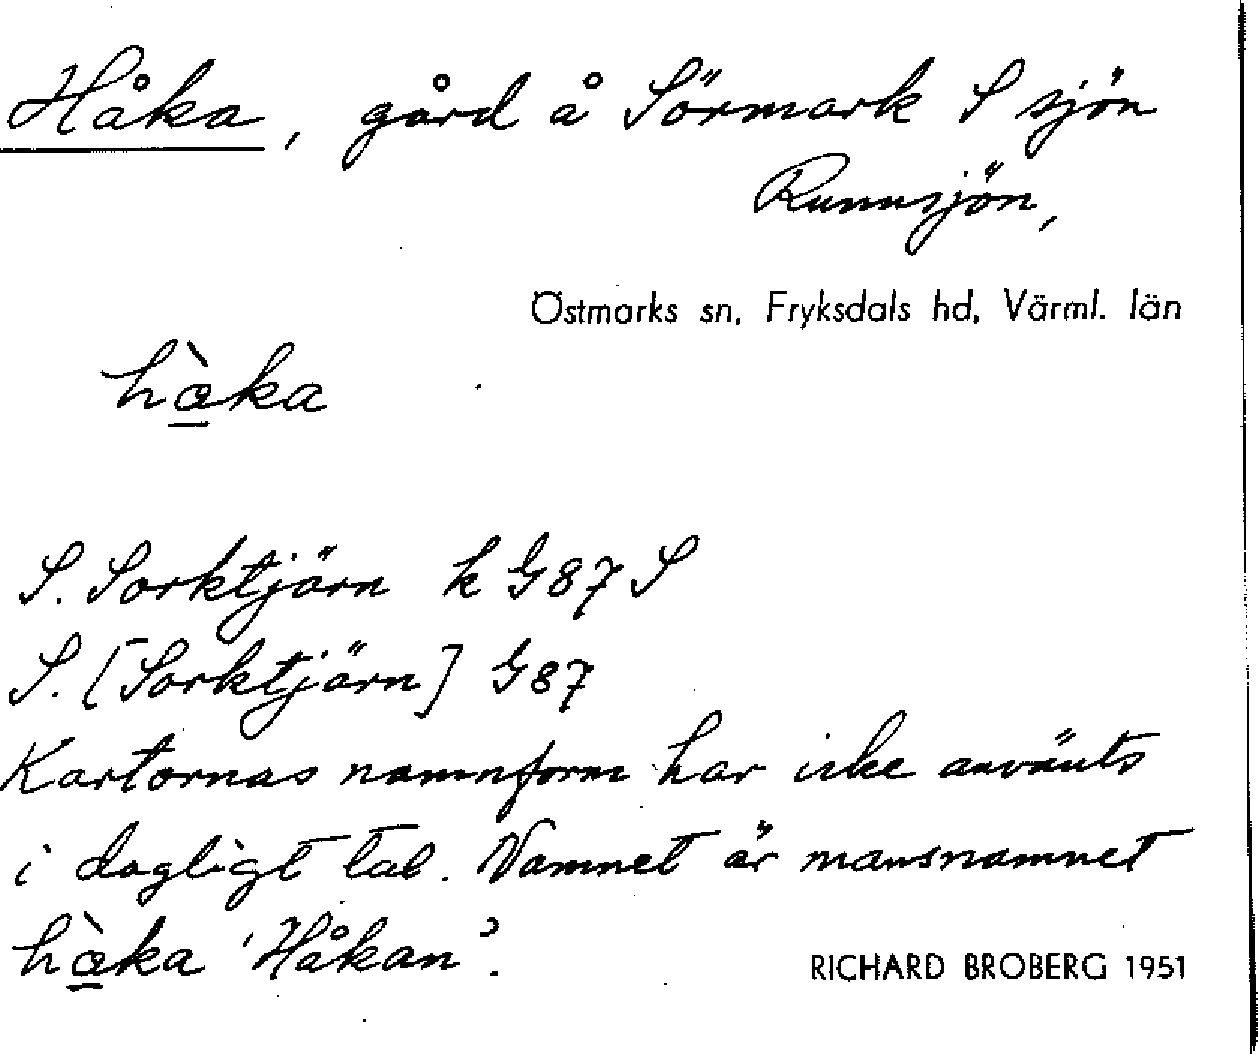 Håka, gård å Sörmark S sjön
Runnsjön,
Östmarks sn, Fryksdals hd, Värml. län
hàka
S. Sorktjärn k G87 S
S. [Sorktjärn] G87
Kartornas namnform har icke använts
i dagligt tal. Namnet är mansnamnet
hàka 'Håkan'.
RICHARD BROBERG 1951